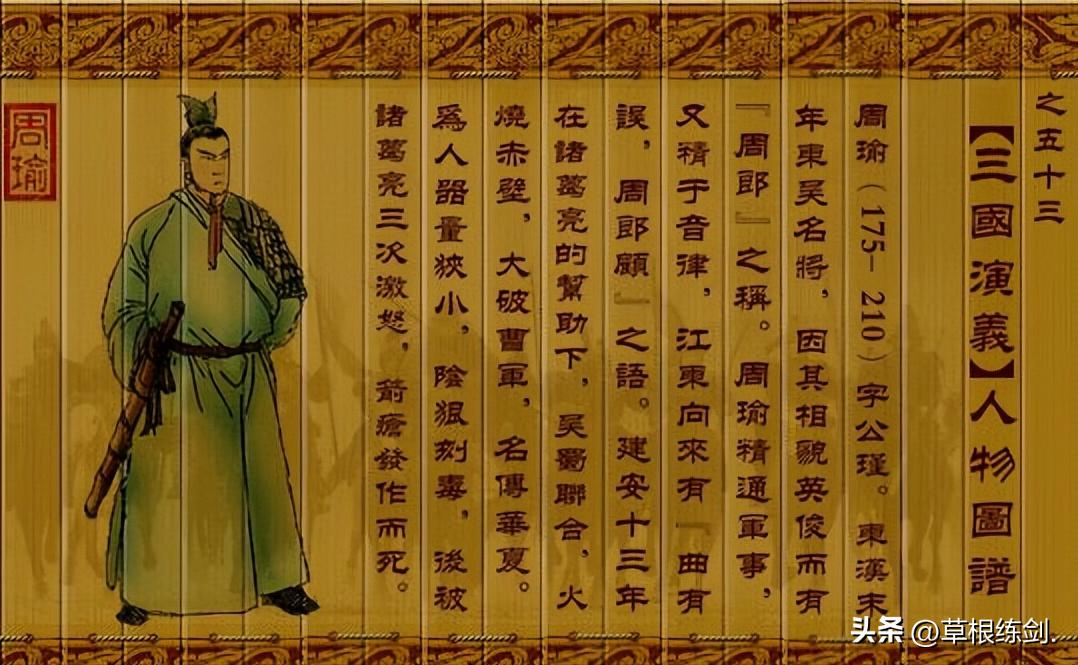 之五十三
【三國演義】人物圖譜
周瑜（175－210）字公瑾。東漢末
年東吴名將，因其相貌英俊而有
『周郎』之稱。周瑜精通軍事，
又精于音律，江東向來有『曲有
誤，周郎顧』之語。建安十三年
在諸葛亮的幫助下，吴蜀聯合，火
燒赤壁，大破曹軍，名傳華夏。
爲人器量狹小，陰狠刻毒，後被
諸葛亮三次激怒，箭瘡發作而死。
周瑜
头条 @草根练剑.